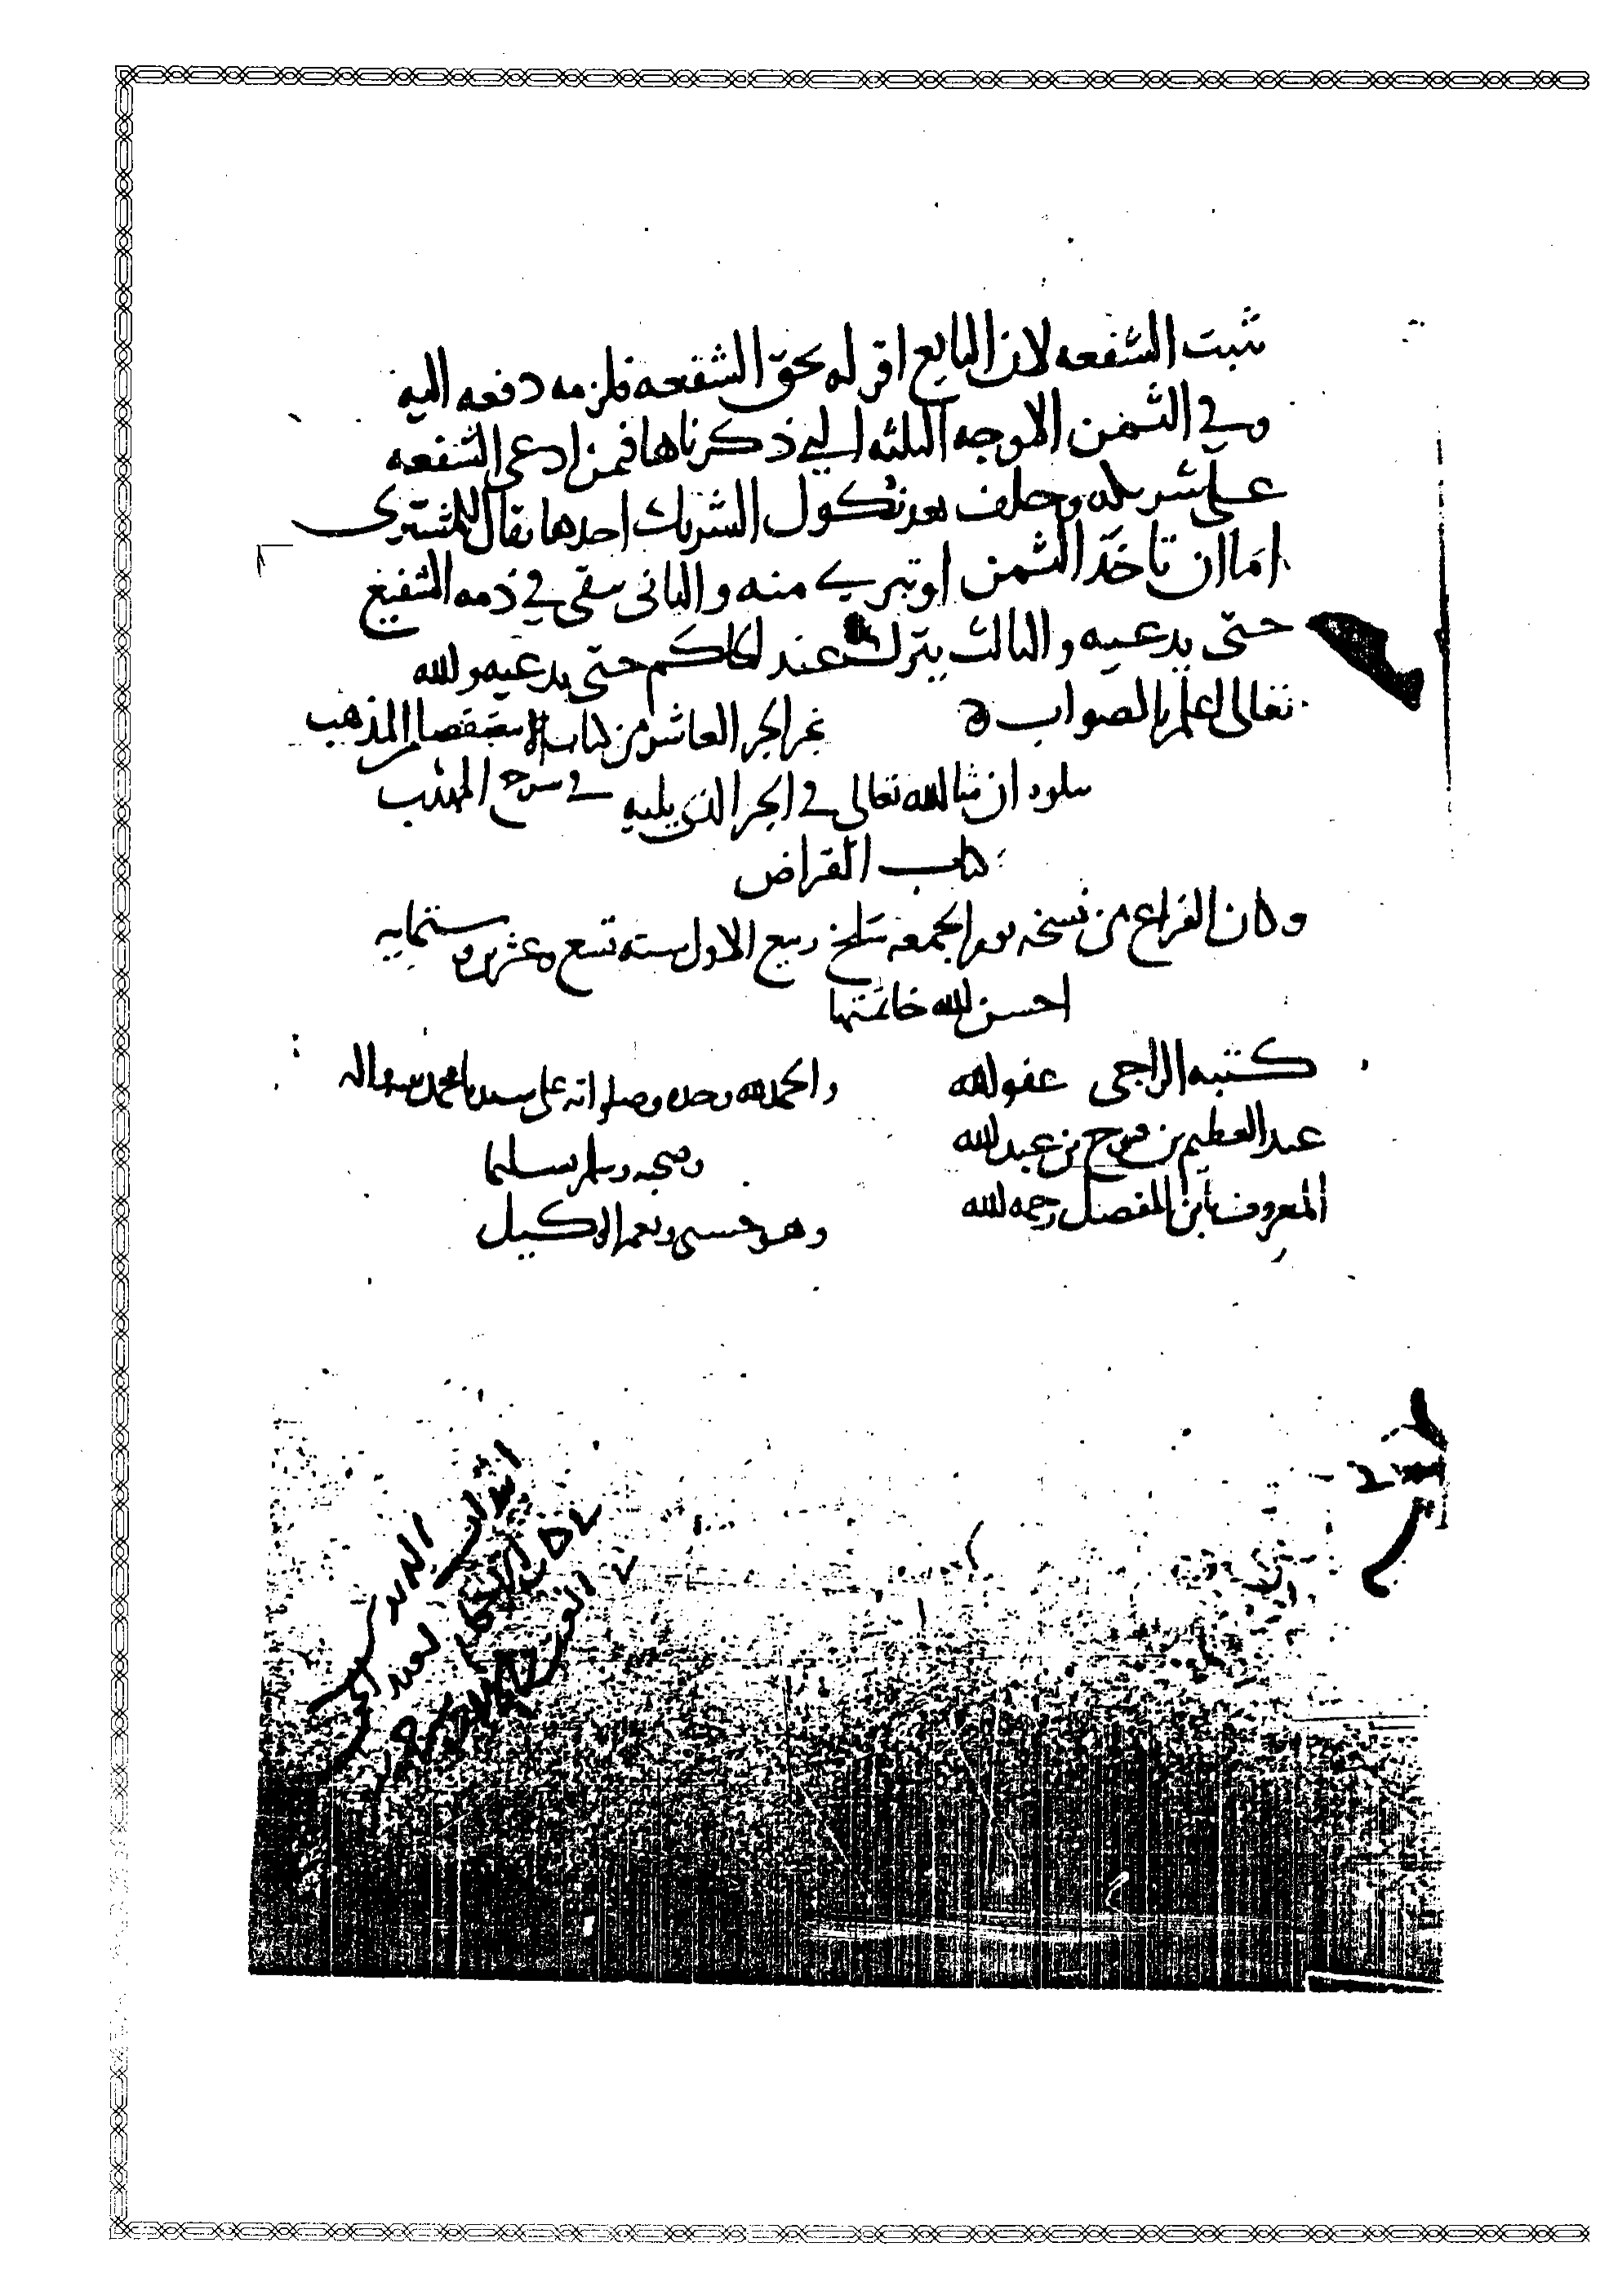 ثبت الشفعه لان البايع اقر له بحق الشفعه فلزمه دفعه اليه
وفي الثمن الاوجه الثلثه التي ذكرناها فيمن ادعى الشفعه
على شريكه وحلف بعد نكول الشريك احدها يقال للمشتري
اما ان تاخذ الثمن او تبري منه والثاني يبقى في ذمه الشفيع
حتى يدعيه والثالث يترك عند الحاكم حتى يدعيه والله
تعالى اعلم بالصواب
نجز الجز العاشر من كتاب الاستقصا لمذهب
يتلوه ان شا الله تعالى في الجز الذي يليه
في شرح المهذب
كتاب القراض
وكان الفراغ من نسخه يوم الجمعه سلخ ربيع الاول سنه تسع وعشرين وستمايه
احسن الله خاتمتها
كتبه الراجي عفو الله
عبد العظيم بن بن عبد الله
المعروف بابن المفضل رحمه الله
والحمد لله وحده وصلواته على سيدنا محمد واله
وصحبه وسلم تسليما
وهو حسبي ونعم الوكيل